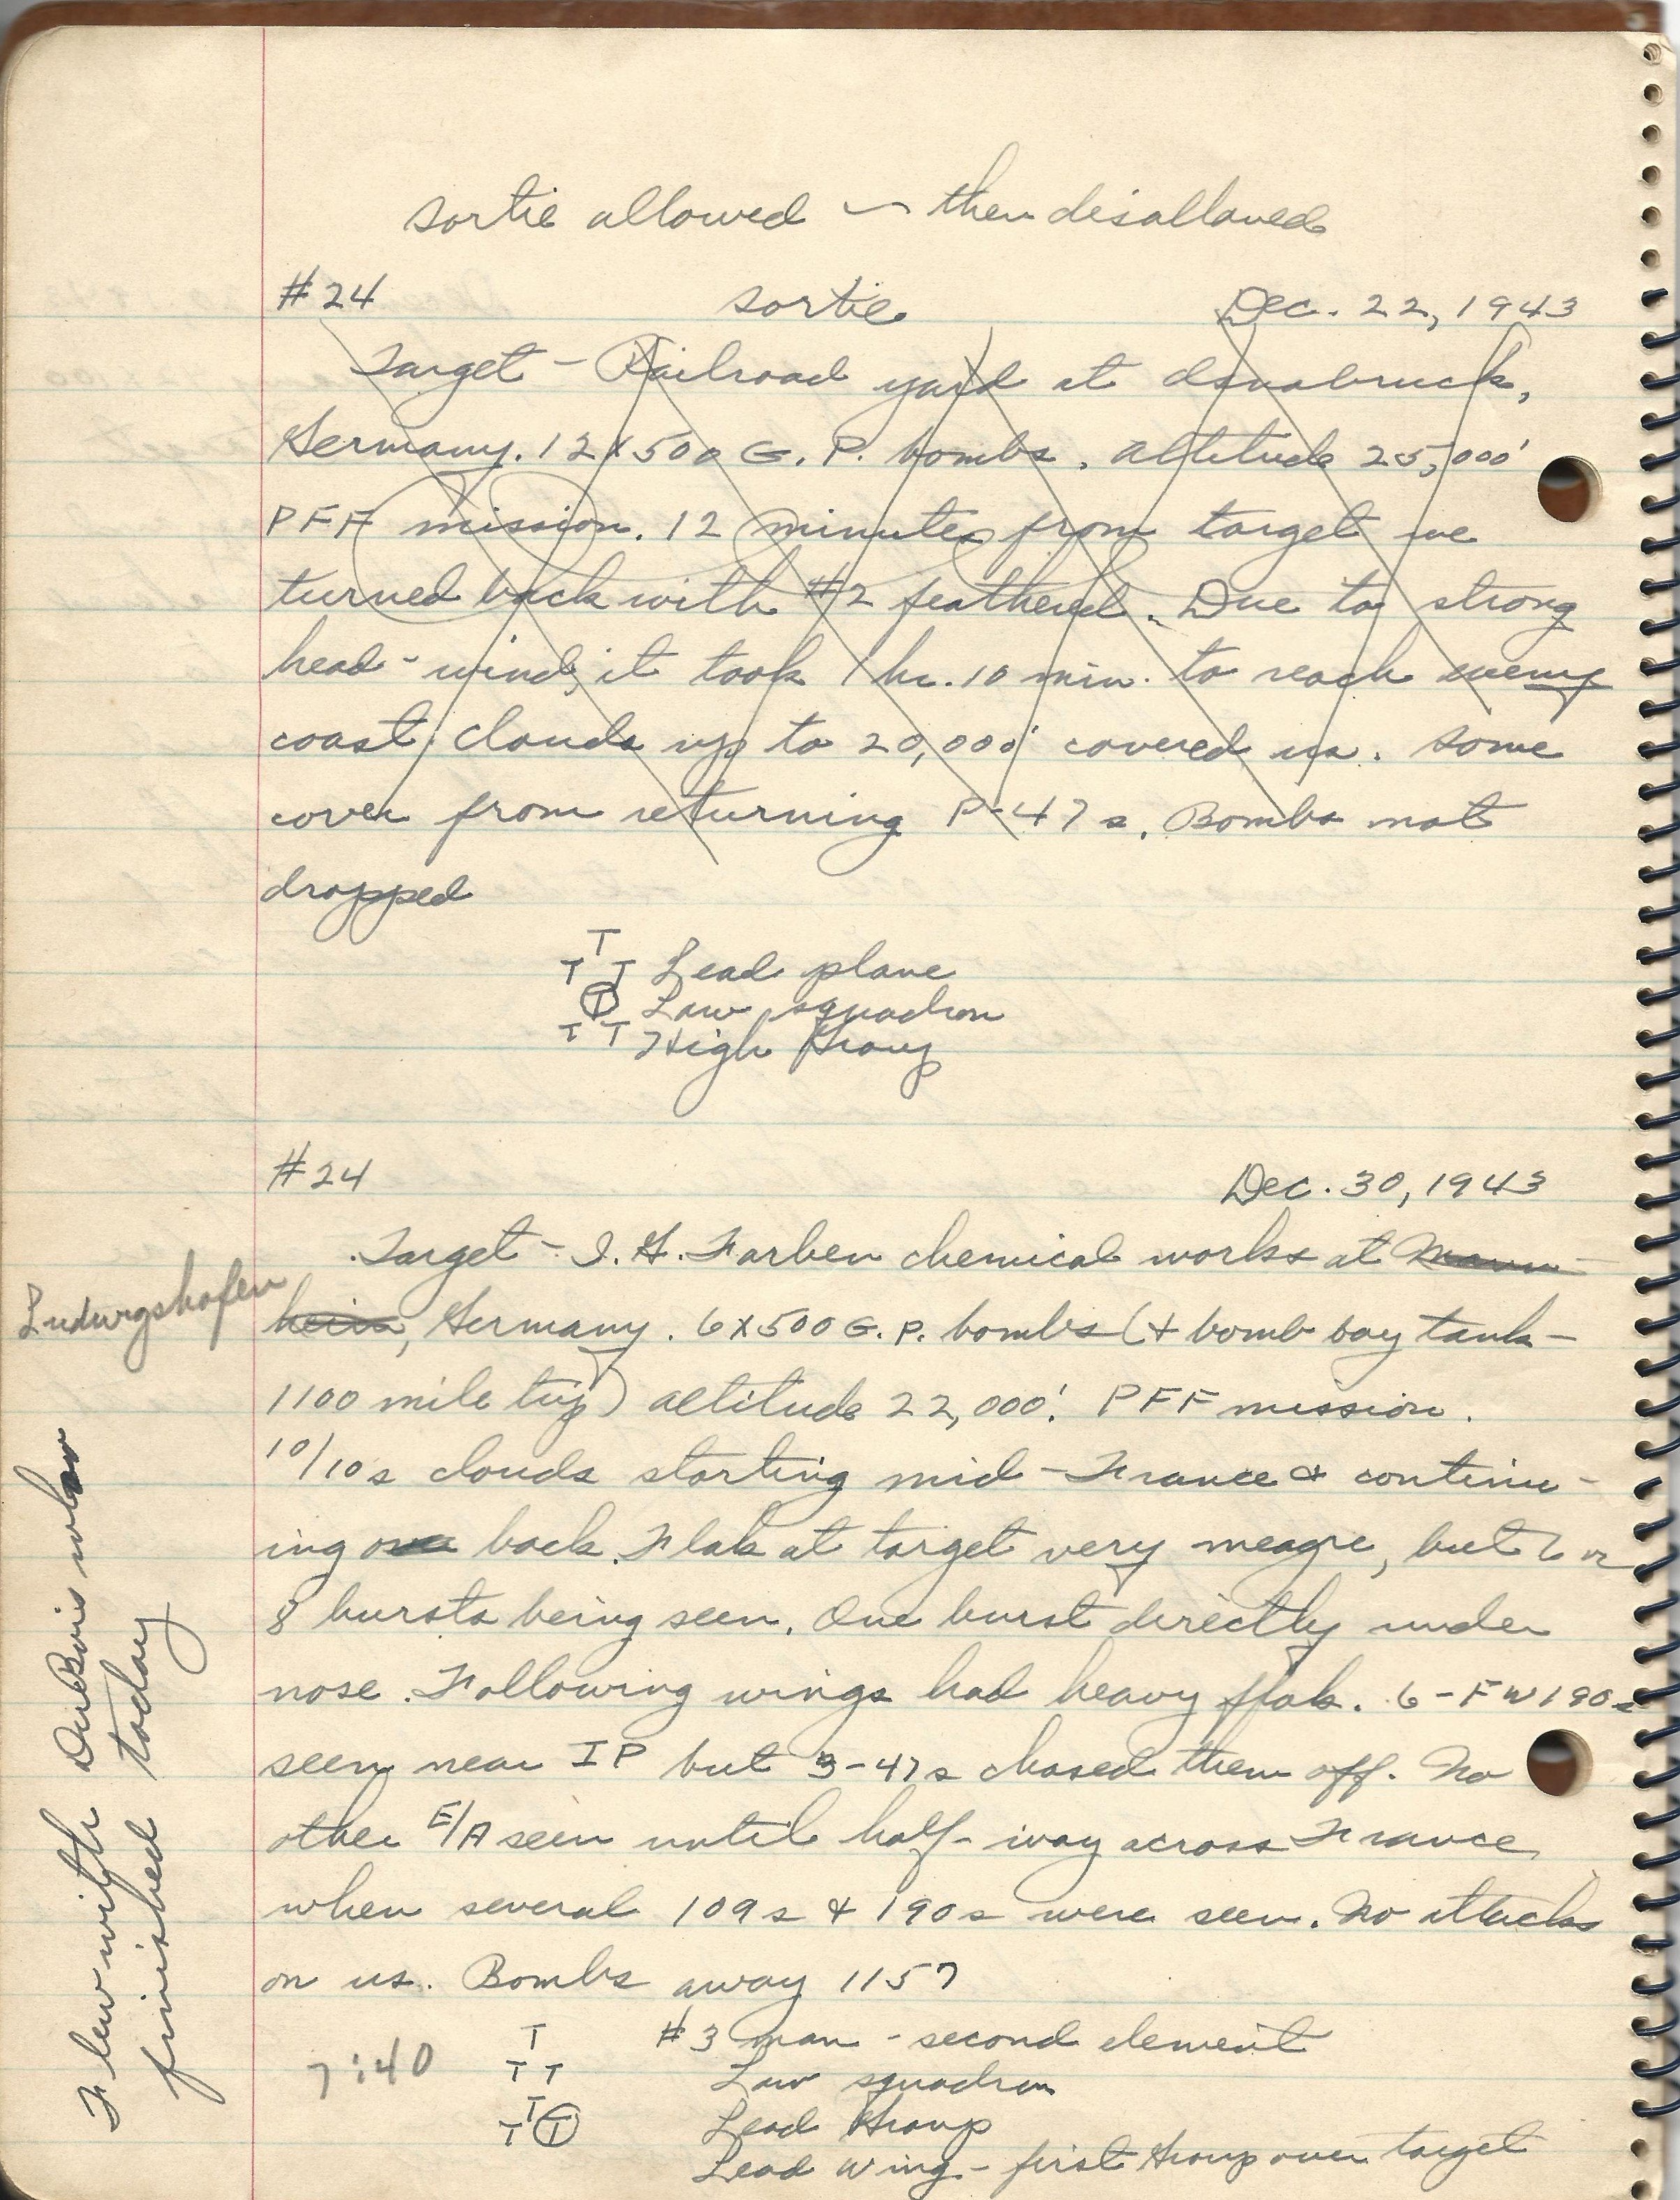 sortie allowed — then disallowed
#24 sortie Dec. 22, 1943
Target - Railroad yard at Osnabruck,
Germany. 12X500 G. P. bombs. altitude 25,000'
PFF mission. 12 minutes from target we
turned back with #2 feathered. Due to strong
head-wind, it took 1 hr. 10 min. to reach enemy
coast. Clouds up to 20,000' covered us. Some
cover from returning P-47s. Bombs not
dropped
T
T T Lead plane
T Low squadron
T T High Group
#24 Dec. 30, 1943
Target - I. G. Farben chemical works at Mann-
Ludwigshafen
heim, Germany. 6X500 G. P. bombs (+ bomb bay tank-
1100 mile trip) altitude 22,000'. PFF mission.
10/10s clouds starting mid-France & continu-
ing back. Flak at target very meagre, but 6 or
8 bursts being seen. One burst directly under
nose. Following wings had heavy flak. 6-FW190s
seen near IP but 3-47s chased them off. No
other E/A seen until half-way across France
when several 109s & 190s were seen. No attacks
on us. Bombs away 1157
T #3 man - second element
7:40 T T Low squadron
T
T T Lead Group
Lead Wing - first Group over target
Flew with DuBois who
finished today